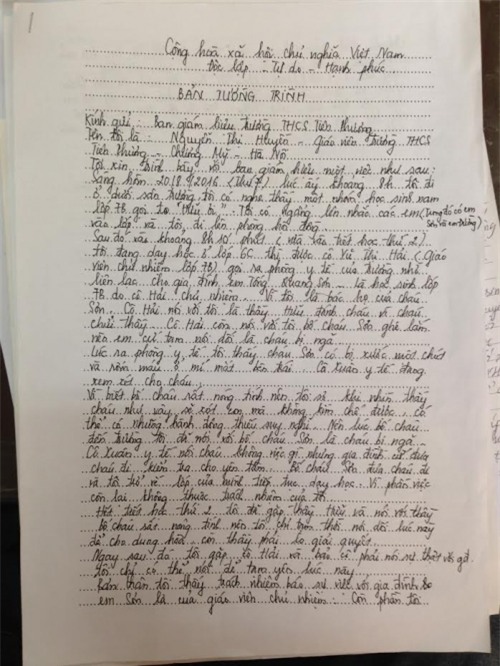 1
Cộng hoà xã hội chủ nghĩa Việt Nam
Độc lập - Tự do - Hạnh phúc
BẢN TƯỜNG TRÌNH
Kính gửi: Ban giám hiệu trường THCS Tiên Phương
Tên tôi là: Nguyễn Thị Huyền - Giáo viên trường THCS
Tiên Phương - Chương Mỹ - Hà Nội
Tôi xin trình bày với ban giám hiệu một việc như sau:
Sáng hôm 20/8/2016 (thứ 7) lúc ấy khoảng 8h tôi đi
ở dưới sân trường tôi có nghe thấy một nhóm học sinh nam
lớp 7B gọi to. Tôi có ngẩng lên nhắc các em (Trong đó có em
vào lớp và tôi đi lên phòng hội đồng
Sau đó vào khoảng 8h10 phút (vừa vào tiết học thứ 2)
tôi đang dạy học ở lớp 6C thì được cô Vũ Thị Hải (Giáo
viên chủ nhiệm lớp 7B) gọi ra phòng y tế của trường nhờ
liên lạc cho gia đình em Tống Quang Sơn - là học sinh lớp
7B do cô Hải chủ nhiệm - Vì tôi là bác họ của cháu
Sơn. Cô Hải nói với tôi là thầy đánh cháu vì cháu
chửi thầy. Cô Hải còn nói với tôi bố cháu Sơn ghê lắm
nên em cứ tạm nói dối là cháu bị ngã.
Lúc ra phòng y tế tôi thấy cháu Sơn có bị xước một chút
và rớm máu ở mí mắt bên trái. Cô Xuân y tế đang
xem xét cho cháu.
Vì biết bố cháu rất nóng tính nên tôi sợ khi nhìn thấy
cháu như vậy sẽ xót con mà không kìm chế được, có
thể có những hành động thiếu suy nghĩ. Nên lúc bố cháu
đến trường tôi đã nói với bố cháu Sơn là cháu bị ngã.
Cô Xuân y tế nói cháu không việc gì nhưng gia đình cứ đưa
cháu đi kiểm tra cho yên tâm. Bố cháu Sơn đưa cháu đi
và tôi trở về lớp của mình tiếp tục dạy học. Vì phần việc
còn lại không thuộc trách nhiệm của tôi
Hết tiết học thứ 2 tôi đã gặp thầy và nói với thầy
bố cháu rất nóng tính nên tôi chỉ tạm thời nói dối lúc này
để cho dung hoà còn thầy phải lo giải quyết.
Ngay sau đó tôi gặp cô Hải và bảo cô phải nói sự thật với gđ
tôi chỉ có thể nói để tạm yên lúc này
Bản thân tôi thấy trách nhiệm báo sự việc với gia đình
em Sơn là của giáo viên chủ nhiệm. Còn phần tôi